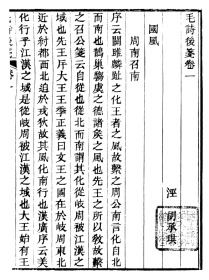 毛詩後箋卷一
涇
胡承珙
國風
周南召南
序云關雎麟趾之化王者之風故繫之周公南言化自北
而南也鵲巢騶虞之德諸矦之風也先王之所以敎故繫
之召公箋云自從也從北而南謂其化從岐周被江漢之
域也先王斥大王王季正義曰文王之國在於岐周東北
近於紂都西北迫於戎狄故其風化南行也漢廣序云美
化行乎江漢之域是從岐周被江漢之域也大王始有王